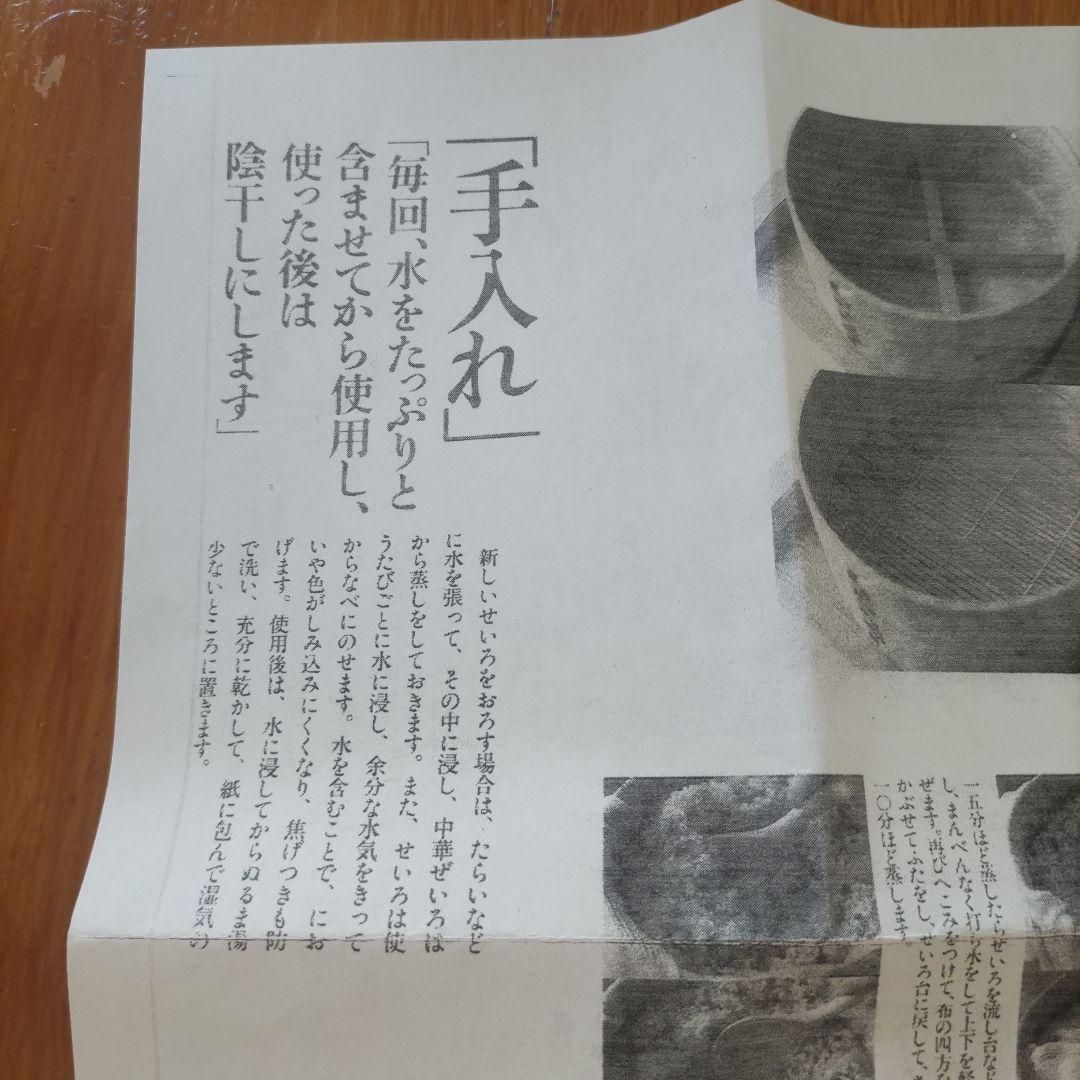 「手入れ」
「毎回、水をたっぷりと
含ませてから使用し、
使った後は
陰干しにします」
新しいせいろをおろす場合は、たらいなど
に水を張って、その中に浸し、中華ぜいろは
から蒸しをしておきます。また、せいろは使
うたびごとに水に浸し、余分な水気をきって
からなべにのせます。水を含むことで、にお
いや色がしみ込みにくくなり、焦げつきも防
げます。使用後は、水に浸してからぬるま湯
で洗い、充分に乾かして、紙に包んで湿気の
少ないところに置きます。
一五分ほど蒸したらせいろを流し台など
し、まんべんなく打ち水をして上下を軽
ぜます。再びへこみをつけて、布の四方を
かぶせてふたをし、せいろ台に戻して、
一〇分ほど蒸します。